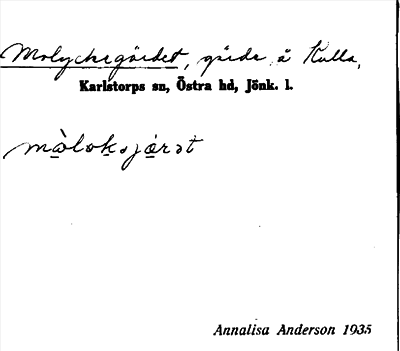 Molyckegärdet, gärde å Kulla,
Karlstorps sn, Östra hd, Jönk. l.
mòləkəjǽrət
Annalisa Anderson 1935